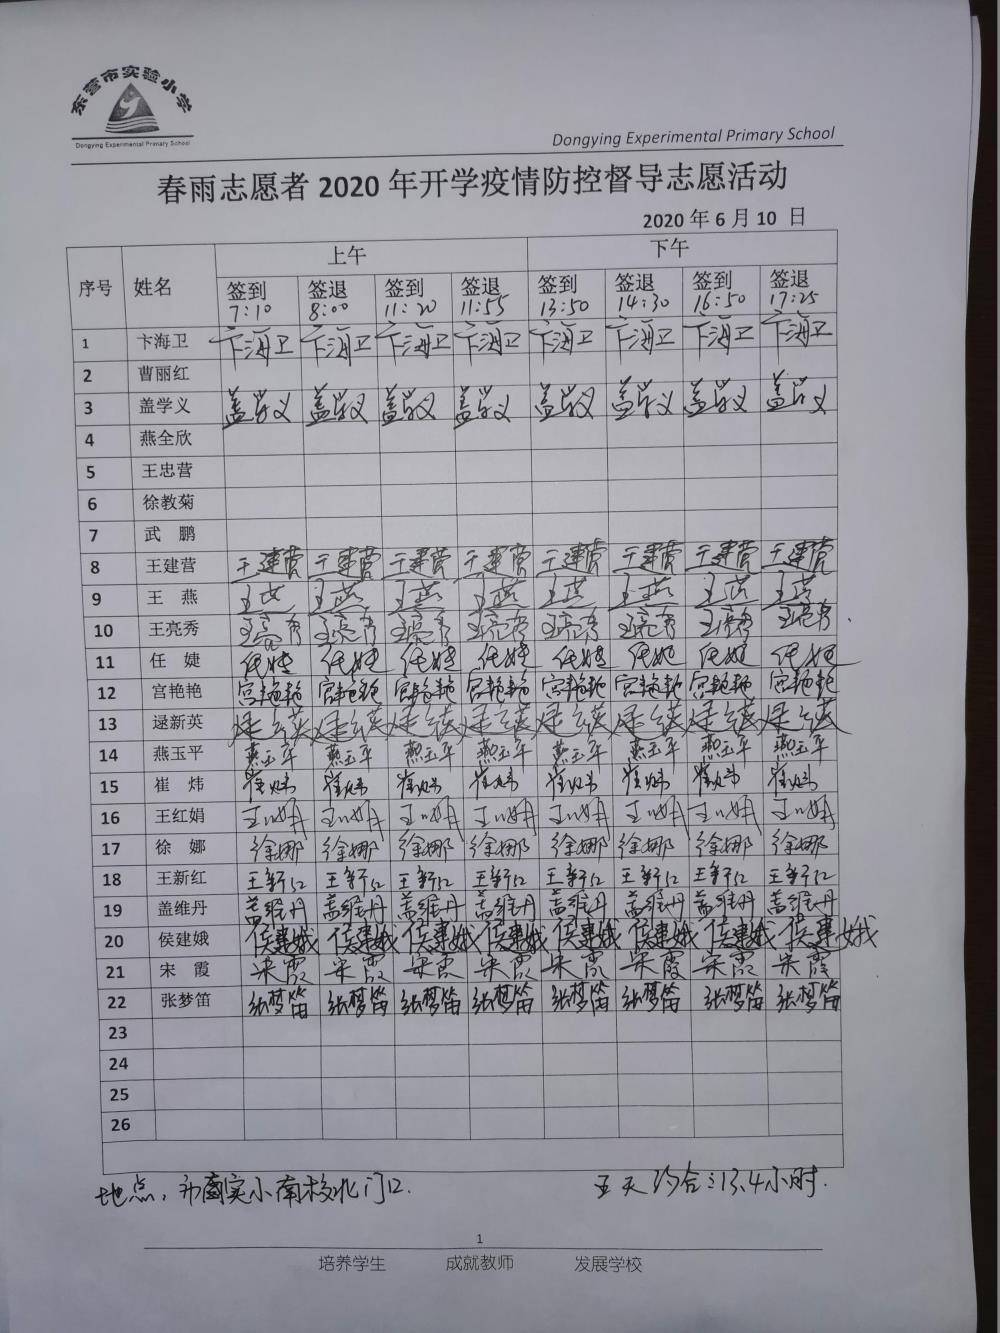 东营市实验小学
Dongying Experimental Primary School
Dongying Experimental Primary School
春雨志愿者 2020 年开学疫情防控督导志愿活动
2020 年 6 月 10 日
序号 姓名 上午 下午
签到 签退 签到 签退 签到 签退 签到 签退
7:10 8:00 11:20 11:55 13:50 14:30 16:50 17:25
1 卞海卫 卞海卫 卞海卫 卞海卫 卞海卫 卞海卫 卞海卫 卞海卫 卞海卫
2 曹丽红
3 盖学义 盖学义 盖学义 盖学义 盖学义 盖学义 盖学义 盖学义 盖学义
4 燕全欣
5 王忠营
6 徐教菊
7 武 鹏
8 王建营 王建营 王建营 王建营 王建营 王建营 王建营 王建营 王建营
9 王 燕 王燕 王燕 王燕 王燕 王燕 王燕 王燕 王燕
10 王亮秀 王亮秀 王亮秀 王亮秀 王亮秀 王亮秀 王亮秀 王亮秀 王亮秀
11 任 婕 任婕 任婕 任婕 任婕 任婕 任婕 任婕 任婕
12 宫艳艳 宫艳艳 宫艳艳 宫艳艳 宫艳艳 宫艳艳 宫艳艳 宫艳艳 宫艳艳
13 逯新英 逯新英 逯新英 逯新英 逯新英 逯新英 逯新英 逯新英 逯新英
14 燕玉平 燕玉平 燕玉平 燕玉平 燕玉平 燕玉平 燕玉平 燕玉平 燕玉平
15 崔 炜 崔炜 崔炜 崔炜 崔炜 崔炜 崔炜 崔炜 崔炜
16 王红娟 王红娟 王红娟 王红娟 王红娟 王红娟 王红娟 王红娟 王红娟
17 徐 娜 徐娜 徐娜 徐娜 徐娜 徐娜 徐娜 徐娜 徐娜
18 王新红 王新红 王新红 王新红 王新红 王新红 王新红 王新红 王新红
19 盖维丹 盖维丹 盖维丹 盖维丹 盖维丹 盖维丹 盖维丹 盖维丹 盖维丹
20 侯建娥 侯建娥 侯建娥 侯建娥 侯建娥 侯建娥 侯建娥 侯建娥 侯建娥
21 宋 霞 宋霞 宋霞 宋霞 宋霞 宋霞 宋霞 宋霞 宋霞
22 张梦笛 张梦笛 张梦笛 张梦笛 张梦笛 张梦笛 张梦笛 张梦笛 张梦笛
23
24
25
26
地点:市实小南校北门口. 五天约合:13.4小时.
1
培养学生 成就教师 发展学校